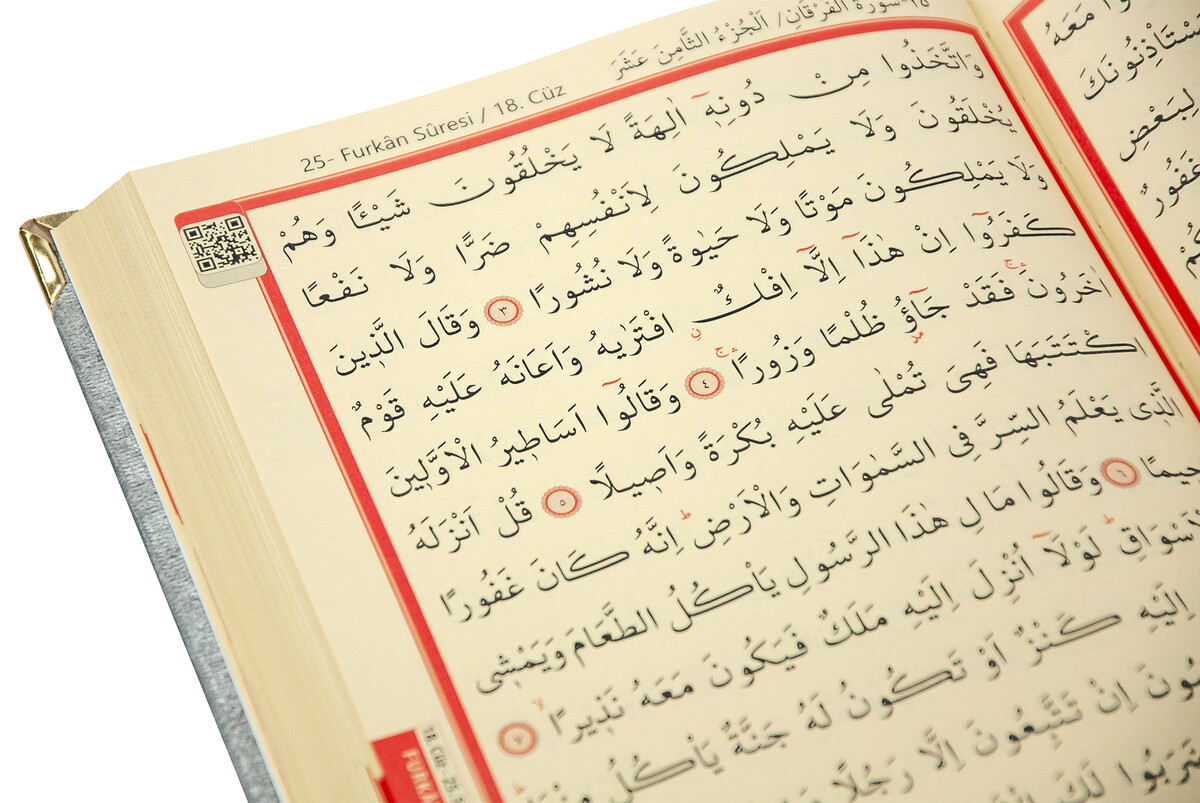 25- Furkân Sûresi / 18. Cüz
٢٥-سورة الفرقان/ اَلْجُزْءُ الثَّامِنَ عَشَرَ
وَاتَّخَذُوا مِنْ دُونِه۪ٓ اٰلِهَةً لَا يَخْلُقُونَ شَيْـًٔا وَهُمْ
يُخْلَقُونَ وَلَا يَمْلِكُونَ لِاَنْفُسِهِمْ ضَرًّا وَلَا نَفْعًا
وَلَا يَمْلِكُونَ مَوْتًا وَلَا حَيٰوةً وَلَا نُشُورًا ﴿٣﴾ وَقَالَ الَّذ۪ينَ
كَفَرُٓوا اِنْ هٰذَٓا اِلَّٓا اِفْكٌۨ افْتَرٰيهُ وَاَعَانَهُ عَلَيْهِ قَوْمٌ
اٰخَرُونَۚ فَقَدْ جَٓاؤُ۫ ظُلْمًا وَزُورًاۚ ﴿٤﴾ وَقَالُٓوا اَسَاط۪يرُ الْاَوَّل۪ينَ
اكْتَتَبَهَا فَهِيَ تُمْلٰى عَلَيْهِ بُكْرَةً وَاَص۪يلًا ﴿٥﴾ قُلْ اَنْزَلَهُ
الَّذ۪ي يَعْلَمُ السِّرَّ فِي السَّمٰوَاتِ وَالْاَرْضِۜ اِنَّهُ كَانَ غَفُورًا
حيمًا ﴿٦﴾ وَقَالُوا مَالِ هٰذَا الرَّسُولِ يَأْكُلُ الطَّعَامَ وَيَمْش۪ي
اَسْوَاقِۜ لَوْلَٓا اُنْزِلَ اِلَيْهِ مَلَكٌ فَيَكُونَ مَعَهُ نَذ۪يرًاۙ ﴿٧﴾
اِلَيْهِ كَنْزٌ اَوْ تَكُونُ لَهُ جَنَّةٌ يَأْكُلُ
اِنْ تَتَّبِعُونَ اِلَّا رَجُلًا
لَكَ
مَعَهُ
لِبَعْضِ
غَفُورٌ
18.Cüz - 25.
FURKA